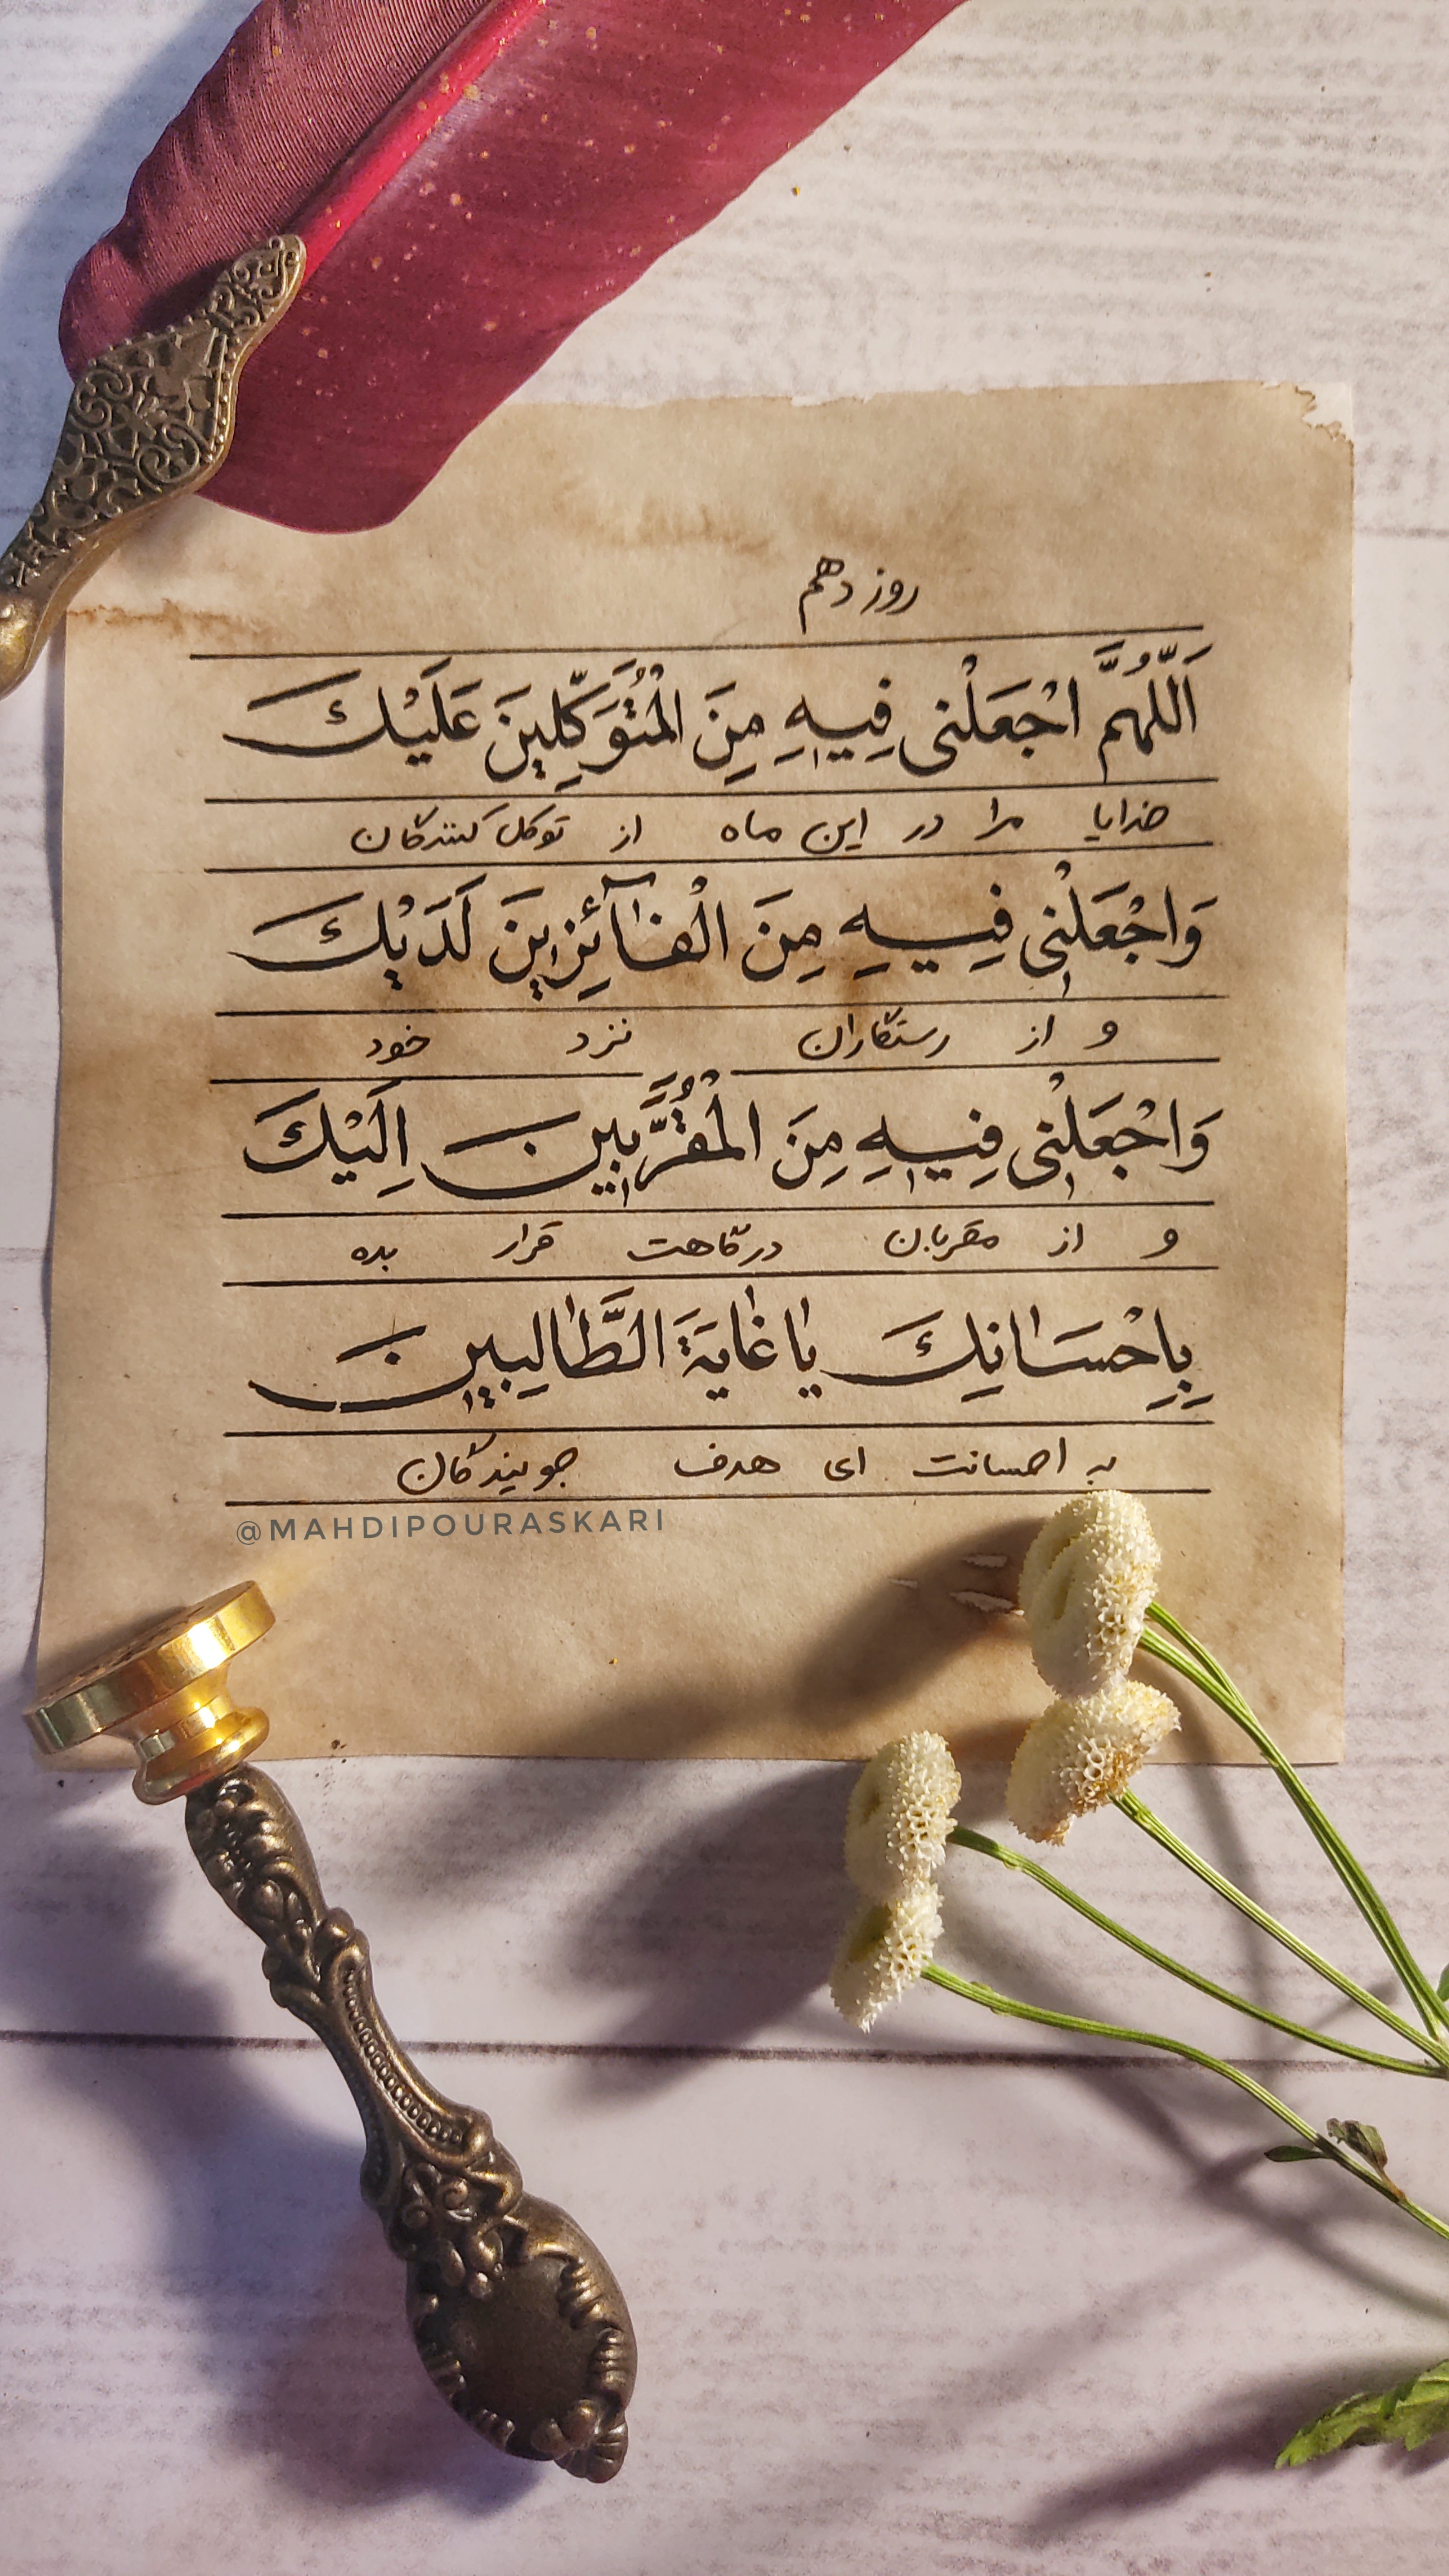 روز دهم
اَللّهُمَّ اجْعَلْنی فِیهِ مِنَ الْمُتَوَکِّلِینَ عَلَیْكَ
خدایا مرا در این ماه از توکل کنندگان
وَاجْعَلْنی فِیهِ مِنَ الْفٰآئِزِینَ لَدَیْكَ
و از رستگاران نزد خود
وَاجْعَلْنی فِیهِ مِنَ الْمُقَرَّبِینَ اِلَیْكَ
و از مقربان درگاهت قرار بده
بِاِحْسٰانِكَ یٰا غٰایَةَ الطَّالِبِینَ
به احسانت ای هدف جویندگان
@MAHDIPOURASKARI